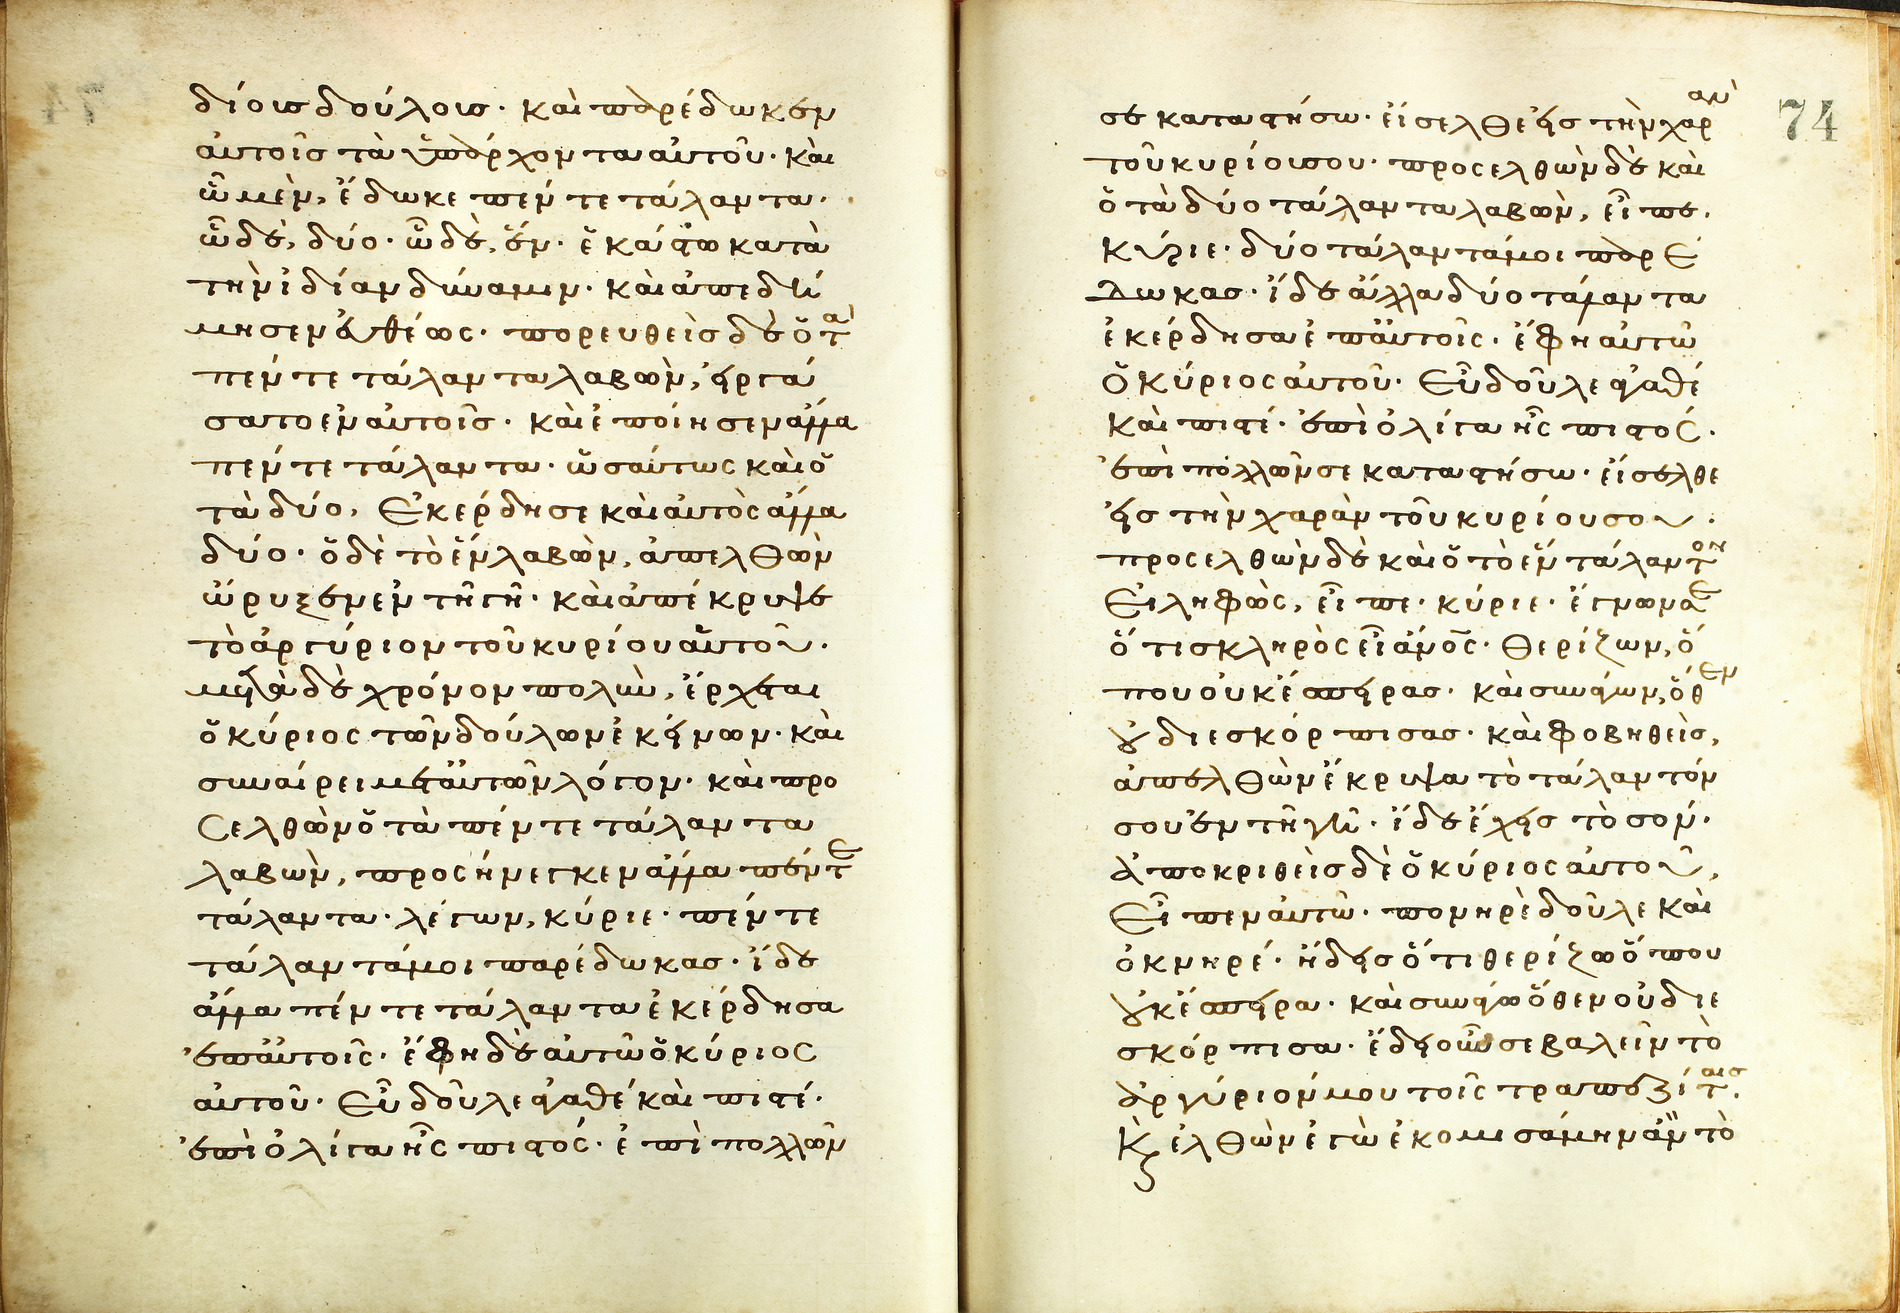 δίοις δούλοις· καὶ παρέδωκεν
αὐτοῖς τὰ ὑπάρχοντα αὐτοῦ· καὶ
ᾧ μὲν, ἔδωκε πέντε τάλαντα·
ᾧ δὲ, δύο· ᾧ δὲ, ἕν· ἑκάστω κατὰ
τὴν ἰδίαν δύναμιν· καὶ ἀπεδή
μησεν εὐθέως· πορευθεὶς δὲ ὁ τὰ
πέντε τάλαντα λαβὼν, εἰργά
σατο ἐν αὐτοῖς· καὶ ἐποίησεν ἄλλα
πέντε τάλαντα· ὡσαύτως καὶ ὁ
τὰ δύο, ἐκέρδησε καὶ αὐτὸς ἄλλα
δύο· ὁ δὲ τὸ ἓν λαβὼν, ἀπελθὼν
ὤρυξεν ἐν τῆ γῆ· καὶ ἀπέκρυψε
τὸ ἀργύριον τοῦ κυρίου αὐτοῦ·
μετὰ δὲ χρόνον πολὺν, ἔρχεται
ὁ κύριος τῶν δούλων ἐκείνων· καὶ
συναίρει μετ' αὐτῶν λόγον· καὶ προ
σελθὼν ὁ τὰ πέντε τάλαντα
λαβὼν, προσήνεγκεν ἄλλα πέντε
τάλαντα· λέγων, κύριε· πέντε
τάλαντά μοι παρέδωκας· ἴδε
ἄλλα πέντε τάλαντα ἐκέρδησα
ἐπ' αὐτοῖς· ἔφη δὲ αὐτῶ ὁ κύριος
αὐτοῦ· εὖ δοῦλε ἀγαθέ καὶ πιστέ·
ἐπὶ ὀλίγα ἦς πιστός· ἐπὶ πολλῶν
74
σε καταστήσω· εἴσελθε εἰς τὴν χαρὰν
τοῦ κυρίου σου· προσελθὼν δὲ καὶ
ὁ τὰ δύο τάλαντα λαβὼν, εἶπε·
κύριε· δύο τάλαντά μοι παρέ
δωκας· ἴδε ἄλλα δύο τάλαντα
ἐκέρδησα ἐπ' αὐτοῖς· ἔφη αὐτῶ
ὁ κύριος αὐτοῦ· εὖ δοῦλε ἀγαθέ
καὶ πιστέ· ἐπὶ ὀλίγα ἦς πιστός·
ἐπὶ πολλῶν σε καταστήσω· εἴσελθε
εἰς τὴν χαρὰν τοῦ κυρίου σου·
προσελθὼν δὲ καὶ ὁ τὸ ἓν τάλαντον
εἰληφὼς, εἶπε· κύριε· ἔγνων σε
ὅτι σκληρὸς εἶ ἄνος· θερίζων, ὅ
που οὐκ ἔσπειρας· καὶ συνάγων, ὅθεν
οὐ διεσκόρπισας· καὶ φοβηθεὶς,
ἀπελθὼν ἔκρυψα τὸ τάλαντόν
σου ἐν τῆ γῆ· ἴδε ἔχεις τὸ σόν·
ἀποκριθεὶς δὲ ὁ κύριος αὐτοῦ,
εἶπεν αὐτῶ· πονηρὲ δοῦλε καὶ
ὀκνηρέ· ἤδεις ὅτι θερίζω ὅπου
οὐκ ἔσπειρα· καὶ συνάγω ὅθεν οὐ διε
σκόρπισα· ἔδει οὖν σε βαλεῖν τὸ
ἀργύριόν μου τοῖς τραπεζίταις·
κ̀ ἐλθὼν ἐγὼ ἐκομισάμην ἂν τὸ